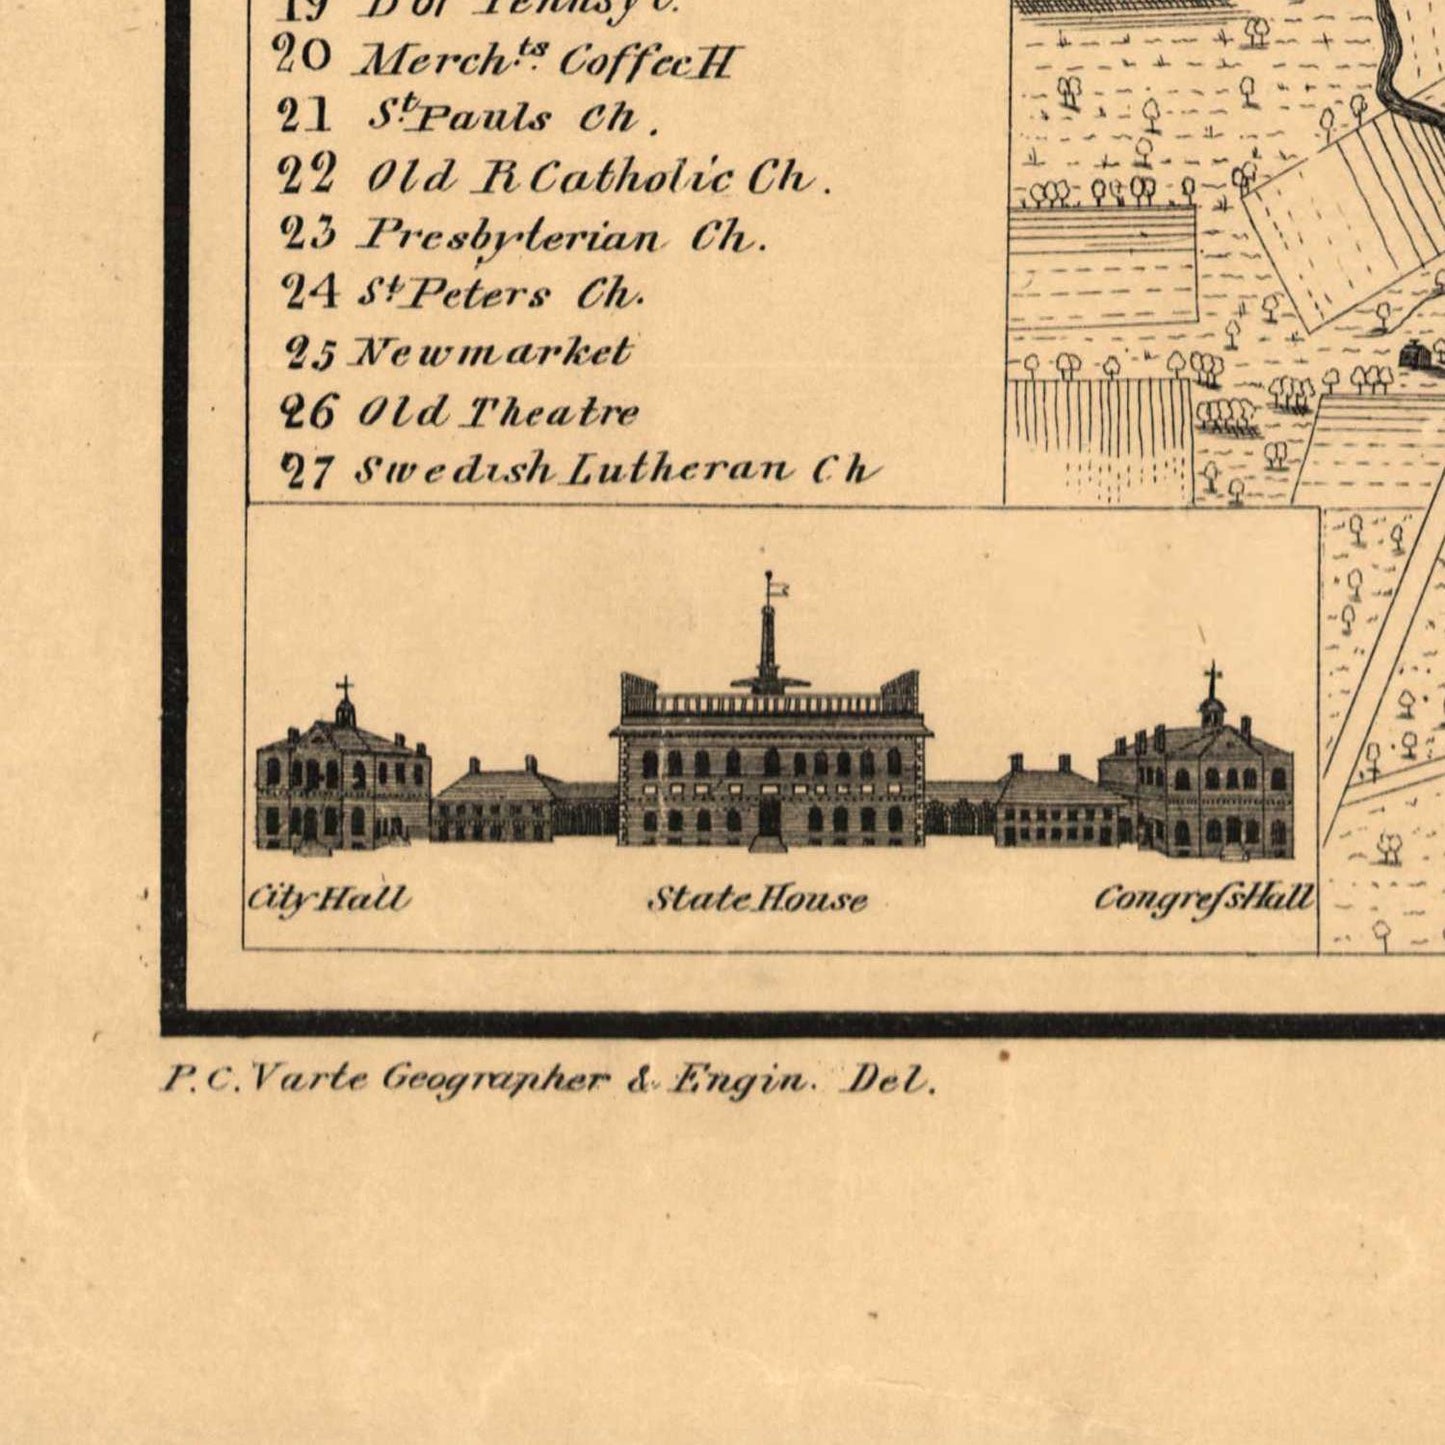 19 Do of Pennsyv.
20 Merch.ts CoffeeH
21 St. Pauls Ch.
22 Old R Catholic Ch.
23 Presbyterian Ch.
24 St Peters Ch.
25 Newmarket
26 Old Theatre
27 Swedish Lutheran Ch
City Hall State House Congreſs Hall
P. C. Varte Geographer & Engin. Del.